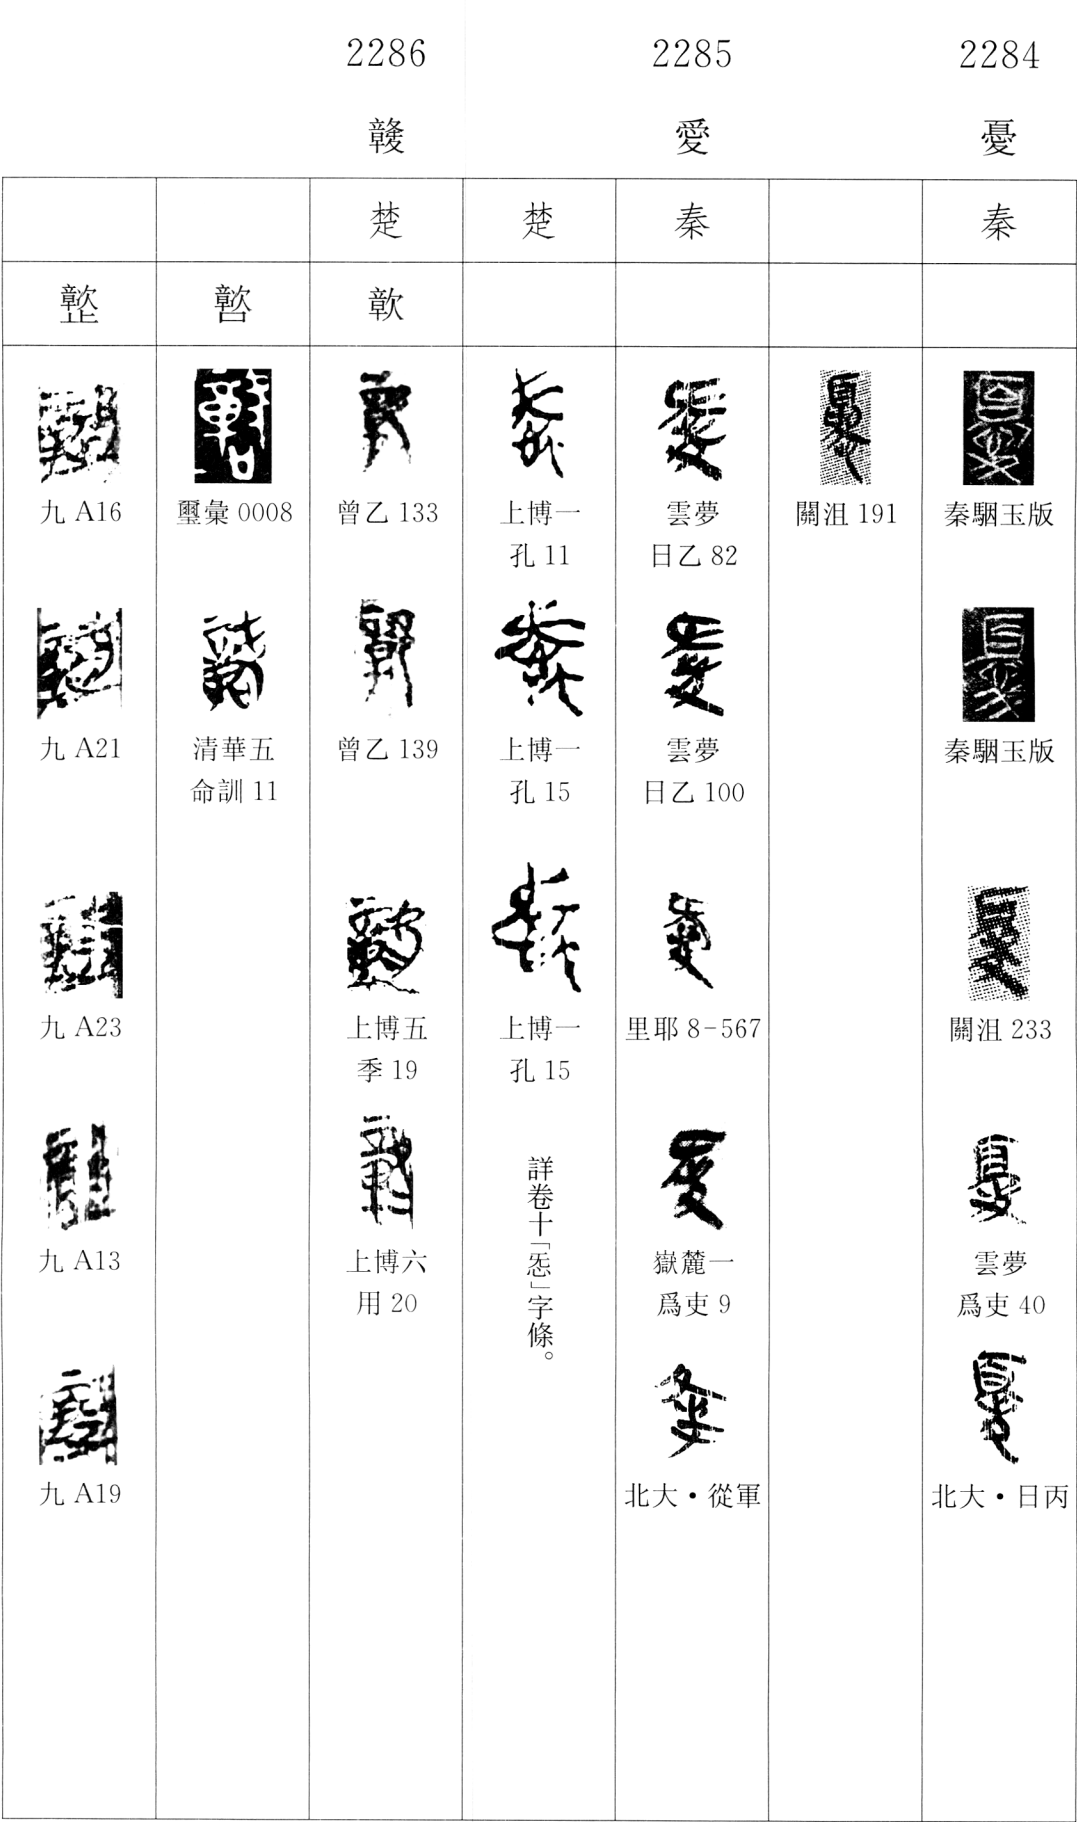 2284
憂
秦
秦駰玉版
秦駰玉版
關沮 233
雲夢
爲吏 40
北大・日丙
關沮 191
2285
愛
秦
雲夢
日乙 82
雲夢
日乙 100
里耶 8-567
嶽麓一
爲吏 9
北大・從軍
楚
上博一
孔 11
上博一
孔 15
上博一
孔 15
詳卷十「㤅」字條。
2286
竷
楚
歕
曾乙 133
曾乙 139
上博五
季 19
上博六
用 20
璽彙 0008
清華五
命訓 11
九 A16
九 A21
九 A23
九 A13
九 A19